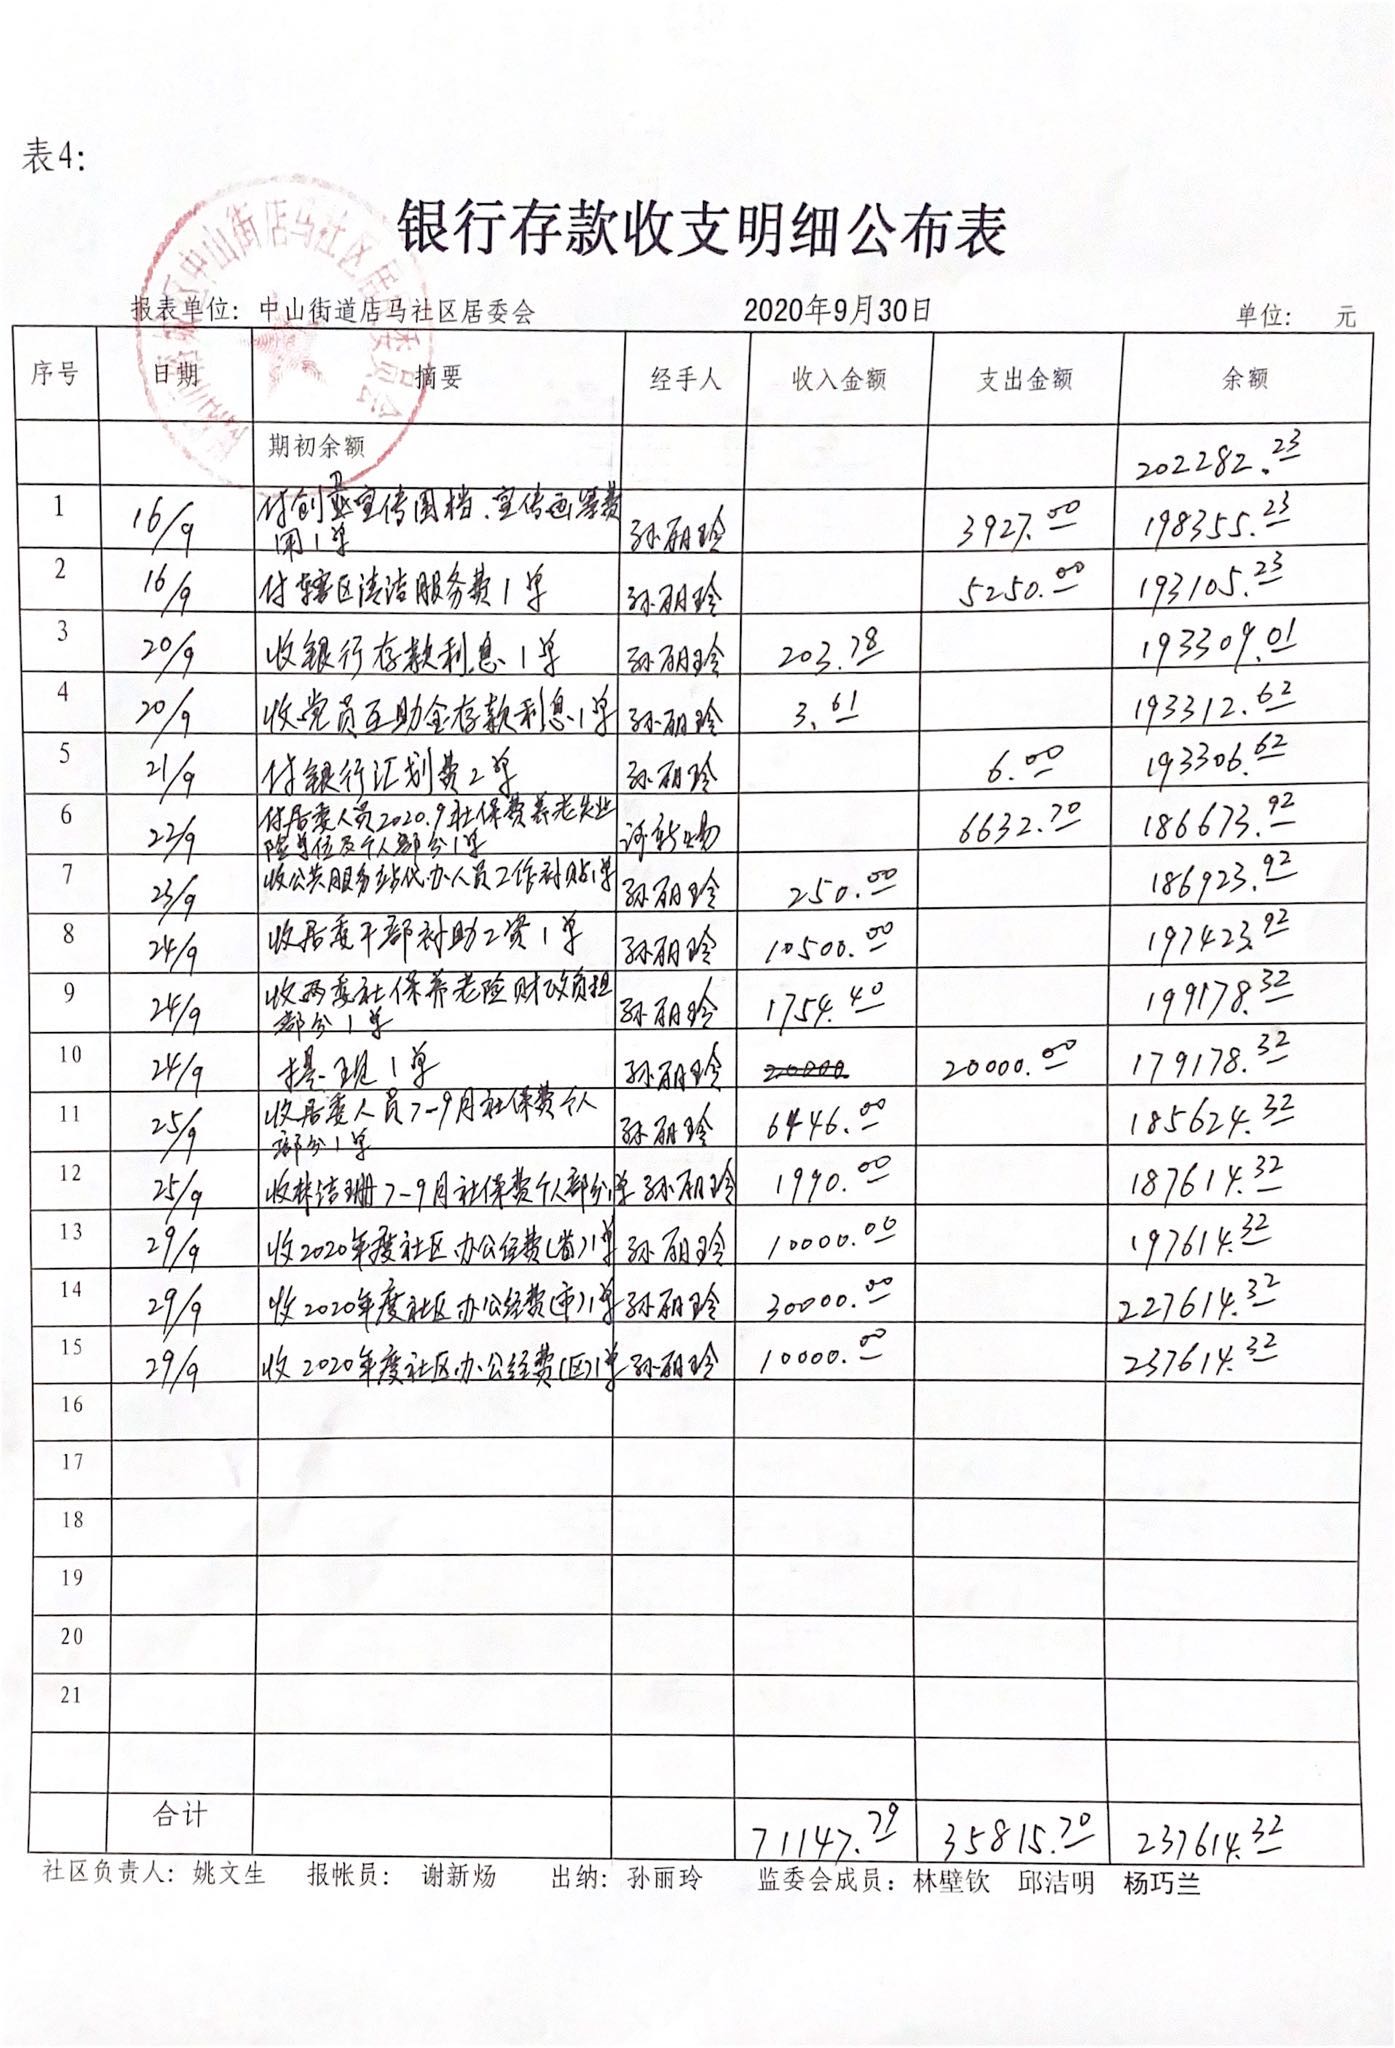 表4:
银行存款收支明细公布表
报表单位: 中山街道店马社区居委会 2020年9月30日 单位: 元
序号 日期 摘要 经手人 收入金额 支出金额 余额
期初余额 202282.23
1 16/9 付创卫宣传围档、宣传画等费 孙丽玲 3927.00 198355.23
用1单
2 16/9 付辖区清洁服务费1单 孙丽玲 5250.00 193105.23
3 20/9 收银行存款利息1单 孙丽玲 203.78 193309.01
4 20/9 收党员互助金存款利息1单 孙丽玲 3.61 193312.62
5 21/9 付银行汇划费2单 孙丽玲 6.00 193306.62
6 22/9 付居委人员2020.9社保费养老失业 谢新炀 6632.70 186673.92
险单位及个人部分1单
7 23/9 收公共服务站代办人员工作补贴1单 孙丽玲 250.00 186923.92
8 24/9 收居委干部补助工资1单 孙丽玲 10500.00 197423.92
9 24/9 收两委社保养老险财政负担 孙丽玲 1754.40 199178.32
部分1单
10 24/9 提现1单 孙丽玲 20000 20000.00 179178.32
11 25/9 收居委人员7-9月社保费个人 孙丽玲 6446.00 185624.32
部分1单
12 25/9 收林洁珊7-9月社保费个人部分1单 孙丽玲 1990.00 187614.32
13 29/9 收2020年度社区办公经费(省)1单 孙丽玲 10000.00 197614.32
14 29/9 收2020年度社区办公经费(市)1单 孙丽玲 30000.00 227614.32
15 29/9 收2020年度社区办公经费(区)1单 孙丽玲 10000.00 237614.32
16
17
18
19
20
21
合计 71147.79 35815.70 237614.32
社区负责人: 姚文生 报帐员: 谢新炀 出纳: 孙丽玲 监委会成员: 林壁钦 邱洁明 杨巧兰